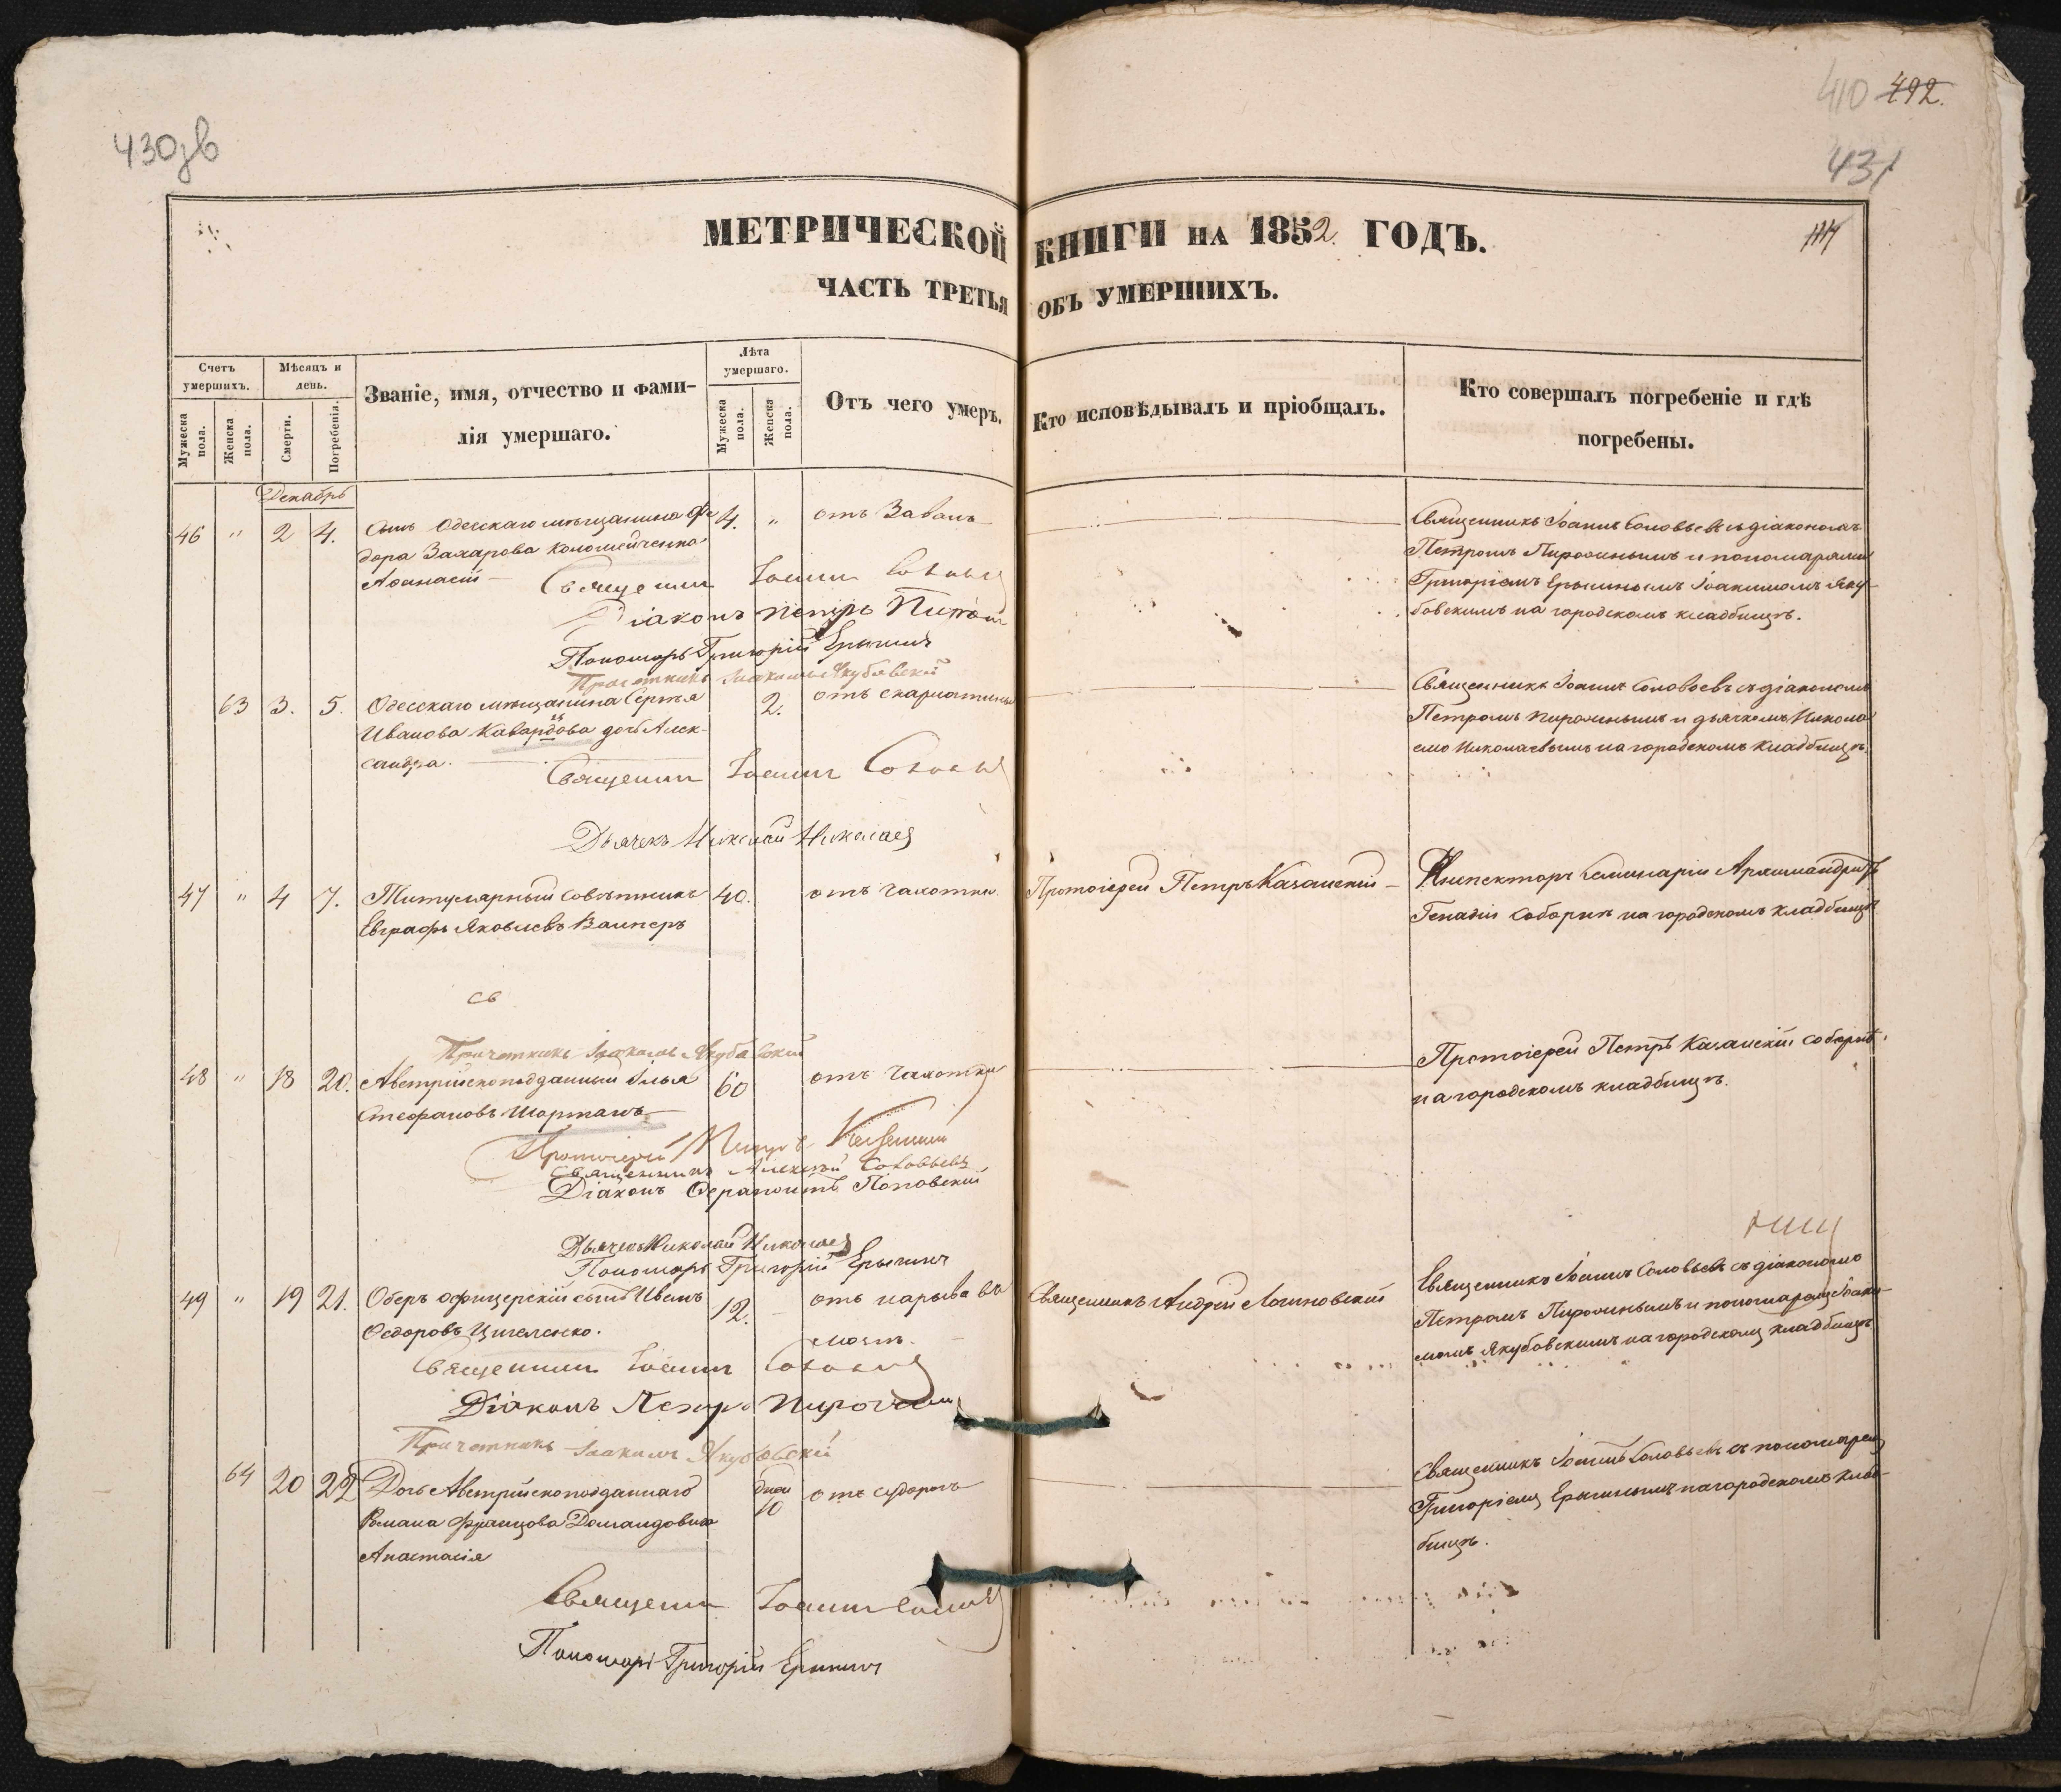 430зв
410 492.
431
МЕТРИЧЕСКОЙ КНИГИ НА 1852. ГОДЪ.
ЧАСТЬ ТРЕТЬЯ ОБЪ УМЕРШИХЪ.
Счетъ умершихъ.
Мѣсяцъ и день.
Званіе, имя, отчество и фами-
лія умершаго.
Лѣта умершаго.
Отъ чего умеръ.
Кто исповѣдывалъ и пріобщалъ.
Кто совершалъ погребеніе и гдѣ
погребены.
Мужеска пола.
Женска пола.
Смерти.
Погребенія.
Мужеска пола.
Женска пола.
Декабрь
46 " 2 4. Сынъ Одесскаго мѣщанина Фе 4. " отъ Заваль
дора Захарова Коломейченка
Аѳанасій
Священникъ Іоаннъ Соловьевъ съ діакономъ
Петромъ Пирожинымъ и пономарями
Григоріемъ Ерыгинымъ Іоакимомъ Яку-
бовскимъ на городскомъ кладбищѣ.
Священникъ Іоаннъ Соловьевъ
Діаконъ Петръ
Пономарь Григорій Ерыгинъ
Причетникъ Іоакимъ Якубовскій
63 3. 5. Одесскаго мѣщанина Сергѣя 2. отъ скарлатины
Иванова дочь Алек-
сандра.
Священникъ Іоаннъ Соловьевъ съ діакономъ
Петромъ и дьячкомъ Никола
емъ Николаевымъ на городскомъ кладбищѣ.
Священникъ Іоаннъ Соловьевъ
Дьячекъ Николай Николаевъ
47 " 4 7. Титулярный Совѣтникъ 40. отъ чахотки Протоіерей Петръ Казанскій
Евграфъ Яковлевъ Вамперъ
Инспекторъ Семинаріи Архимандритъ
Генадій соборнѣ на городскомъ кладбищѣ
св
Причетникъ Іоакимъ Якубовскій
48 " 18 20. Австрійскоподданный Илья 60 отъ чахотки
Стефановъ Шортанъ
Протоіерей Петръ Казанскій соборнѣ
на городскомъ кладбищѣ.
Протоіерей Петръ Казанскій
Священникъ Алексѣй Соловьевъ
Діаконъ Ѳерапонтъ Поповскій
Дьячекъ Николай Николаевъ
Пономарь Григорій Ерыгинъ
49 " 19 21. Оберъ офицерскій сынъ Иванъ 12. отъ нарыва въ Священникъ Андрей Логиновскій
Ѳедоровъ Цигеленко.
Священникъ Іоаннъ Соловьевъ съ діакономъ
Петромъ и пономаремъ Іоаки-
момъ Якубовскимъ на городскомъ кладбищѣ
Священникъ Іоаннъ Соловьевъ
Діаконъ Петръ
Причетникъ Іоакимъ Якубовскій
64 20 22 Дочь Австрійскоподданнаго дней 10 отъ судорогъ
Романа Францова Домандовича
Анастасія
Священникъ Іоаннъ Соловьевъ съ пономаремъ
Григоріемъ Ерыгинымъ на городскомъ клад-
бищѣ.
Священникъ Іоаннъ Соловьевъ
Пономарь Григорій Ерыгинъ